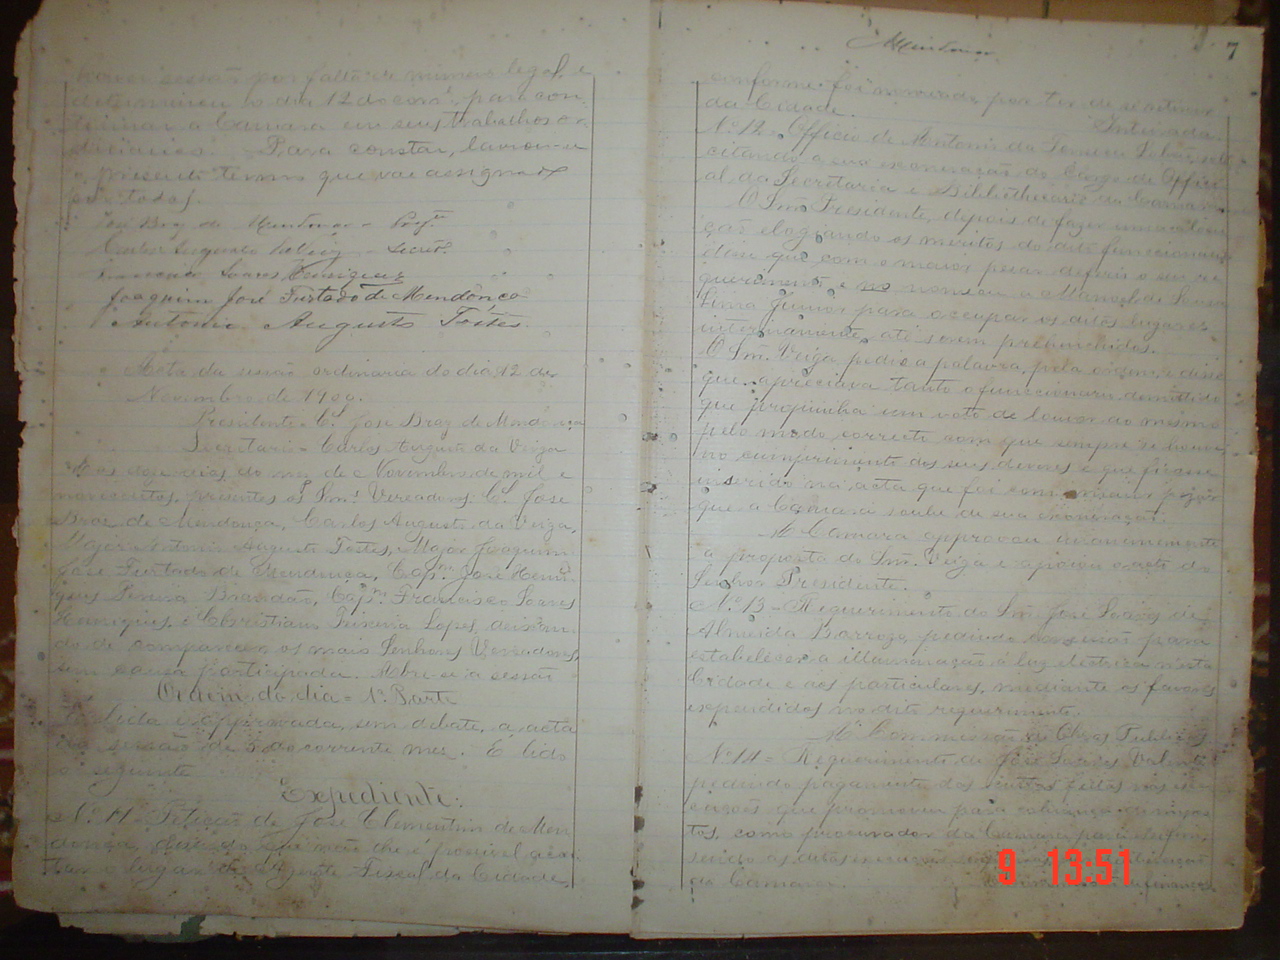 haver sessão por falta de numero legal, e
determinou o dia 12 do corr.e para con-
tinuar a Camara em seus trabalhos or-
dinarios. Para constar, lavrou-se
o presente termo que vae assignado
por todos.
José Braz de Mendonça
Carlos Augusto da Veiga
Francisco Soares Henriques
Joaquim José Furtado de Mendonça
Antonio Augusto Tostes.
Acta da sessão ordinaria do dia 12 de
Novembro de 1900.
Presidente C.el José Braz de Mendonça
Secretario - Carlos Augusto da Veiga
Aos doze dias do mez de Novembro de mil e
novecentos, presentes os Snr.s Vereadores C.el José
Braz de Mendonça, Carlos Augusto da Veiga,
Major Antonio Augusto Tostes, Major Joaquim
José Furtado de Mendonça, Cap.m José Henri-
ques Brandão, Cap.m Francisco Soares
Henriques, e Christiano Teixeira Lopes, deixan-
do de comparecer os mais Senhores Vereadores,
sem causa participada. Abre-se a sessão
Ordem do dia = 1a Parte
É lida e approvada, sem debate, a acta
da sessão de 5 do corrente mez. É lido
o seguinte
Expediente:
No 11 - Petição de José Clementino de Men-
donça, dizendo que não lhe é possivel accei-
tar o lugar de Agente Fiscal da Cidade,
7
Mendonça
conforme foi nomeado, por ter de se retirar
da Cidade. Inteirada.
No 12 - Officio de Antonio da solli-
citando a sua exoneração do Cargo de Offici-
al da Secretaria e Bibliothecario da Camara
O Snr. Presidente, depois de fazer uma
ção elogiando os meritos do dito funccionario,
disse que com o maior pezar deferio o seu re-
querimento e nomeou a Manoel de Souza
Lima Junior para occupar os ditos lugares
interinamente, até serem preenchidos.
O Snr. Veiga pedio a palavra pela ordem e disse
que apreciava tanto o funccionario demittido
que propunha um voto de louvor ao mesmo
pelo modo correcto com que sempre se houve
no cumprimento dos seus deveres e que ficasse
inserido na acta que foi com maior pezar
que a Camara soube de sua exoneração.
A Camara approvou unanimemente
a proposta do Snr. Veiga e apoiou o acto do
Senhor Presidente.
No 13 - Requerimento do Snr. José Soares de
Almeida Barrozo, pedindo concessão para
estabelecer a illuminação á luz electrica nesta
Cidade e aos particulares, mediante os favores
expendidos no dito requerimento.
A Commissão de Obras Publicas
No 14 = Requerimento de José Soares Valente
pedindo pagamento das custas feitas nas exe-
cuções que promoveu para cobrança de impos-
tos, como procurador da Camara
as ditas execuções
da Camara. finanças
9 13:51